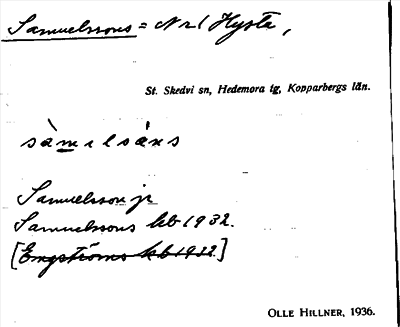 Samuelssons = Nr 1 Hysta,
St. Skedvi sn, Hedemora tg, Kopparbergs län.
sàmelsáns
Samuelsson jr
Samuelssons kb 1932.
[Engströms kb 1932.]
OLLE HILLNER, 1936.